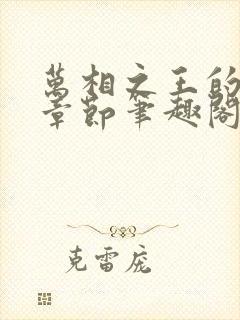 萬相之王的
章節筆趣閣
克雷庞